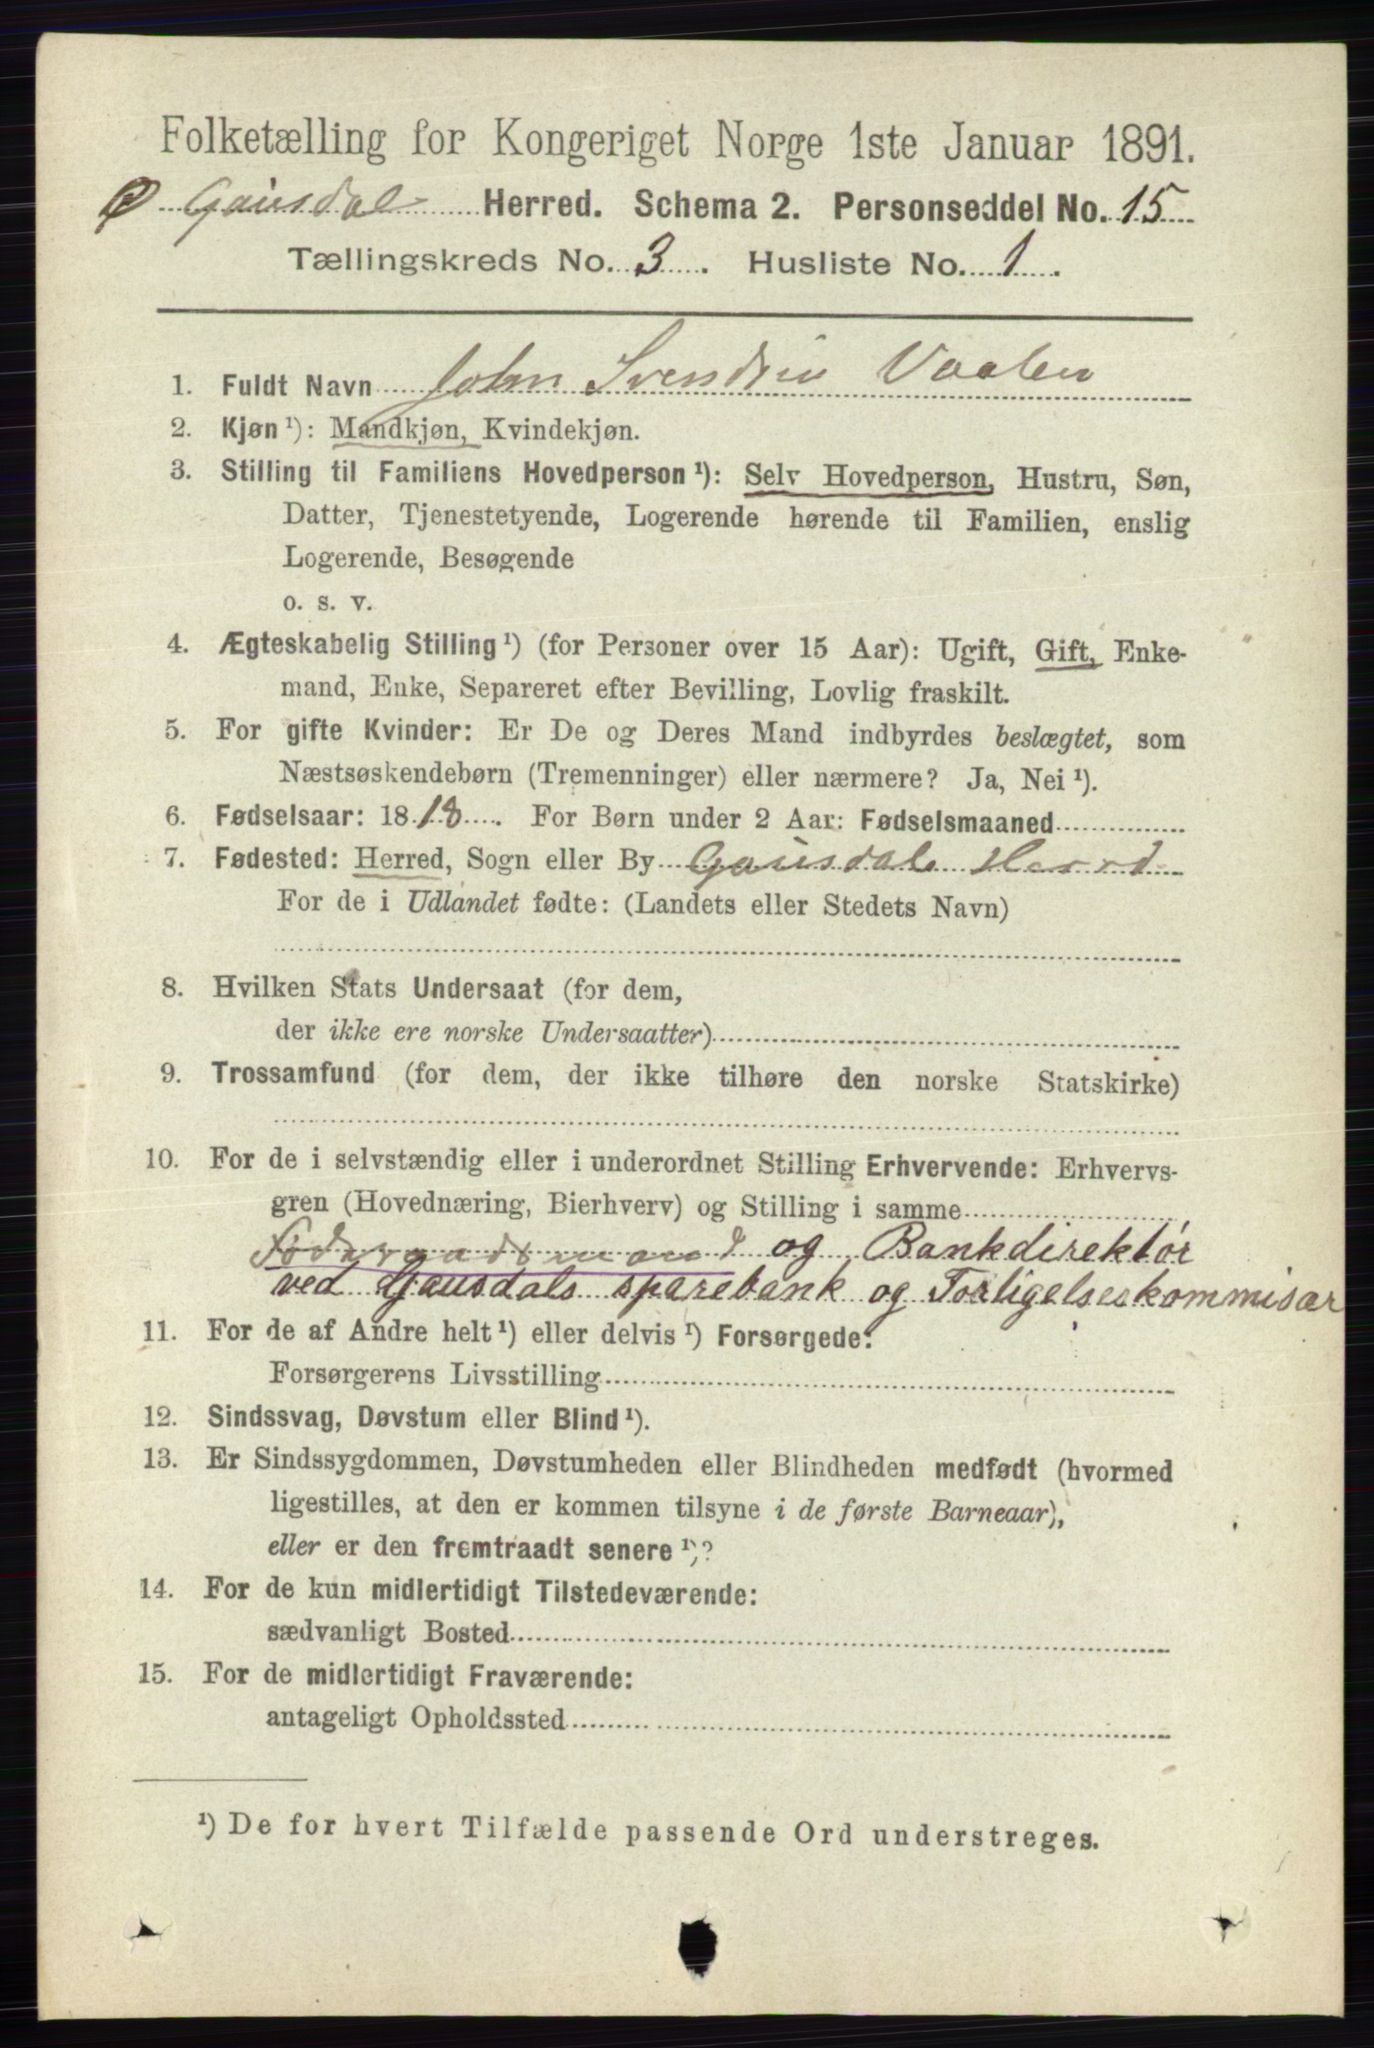 Folketælling for Kongeriget Norge 1ste Januar 1891.
Ø Gausdal Herred. Schema 2. Personseddel No. 15
Tællingskreds No. 3. Husliste No. 1.
1. Fuldt Navn John Svendsen Vaalen
2. Kjøn ¹): Mandkjøn, Kvindekjøn.
3. Stilling til Familiens Hovedperson ¹): Selv Hovedperson, Hustru, Søn,
Datter, Tjenestetyende, Logerende hørende til Familien, enslig
Logerende, Besøgende
o. s. v.
4. Ægteskabelig Stilling ¹) (for Personer over 15 Aar): Ugift, Gift, Enke-
mand, Enke, Separeret efter Bevilling, Lovlig fraskilt.
5. For gifte Kvinder: Er De og Deres Mand indbyrdes beslægtet, som
Næstsøskendebørn (Tremenninger) eller nærmere? Ja, Nei ¹).
6. Fødselsaar: 1818. For Børn under 2 Aar: Fødselsmaaned
7. Fødested: Herred, Sogn eller By Gausdal Herred
For de i Udlandet fødte: (Landets eller Stedets Navn)
8. Hvilken Stats Undersaat (for dem,
der ikke ere norske Undersaatter)
9. Trossamfund (for dem, der ikke tilhøre den norske Statskirke)
10. For de i selvstændig eller i underordnet Stilling Erhvervende: Erhvervs-
gren (Hovednæring, Bierhverv) og Stilling i samme
Föderaadsmand og Bankdirektör
ved Gausdals sparebank og Forligelseskommisær
11. For de af Andre helt ¹) eller delvis ¹) Forsørgede:
Forsørgerens Livsstilling
12. Sindssvag, Døvstum eller Blind ¹).
13. Er Sindssygdommen, Døvstumheden eller Blindheden medfødt (hvormed
ligestilles, at den er kommen tilsyne i de første Barneaar),
eller er den fremtraadt senere ¹)?
14. For de kun midlertidigt Tilstedeværende:
sædvanligt Bosted
15. For de midlertidigt Fraværende:
antageligt Opholdssted
¹) De for hvert Tilfælde passende Ord understreges.